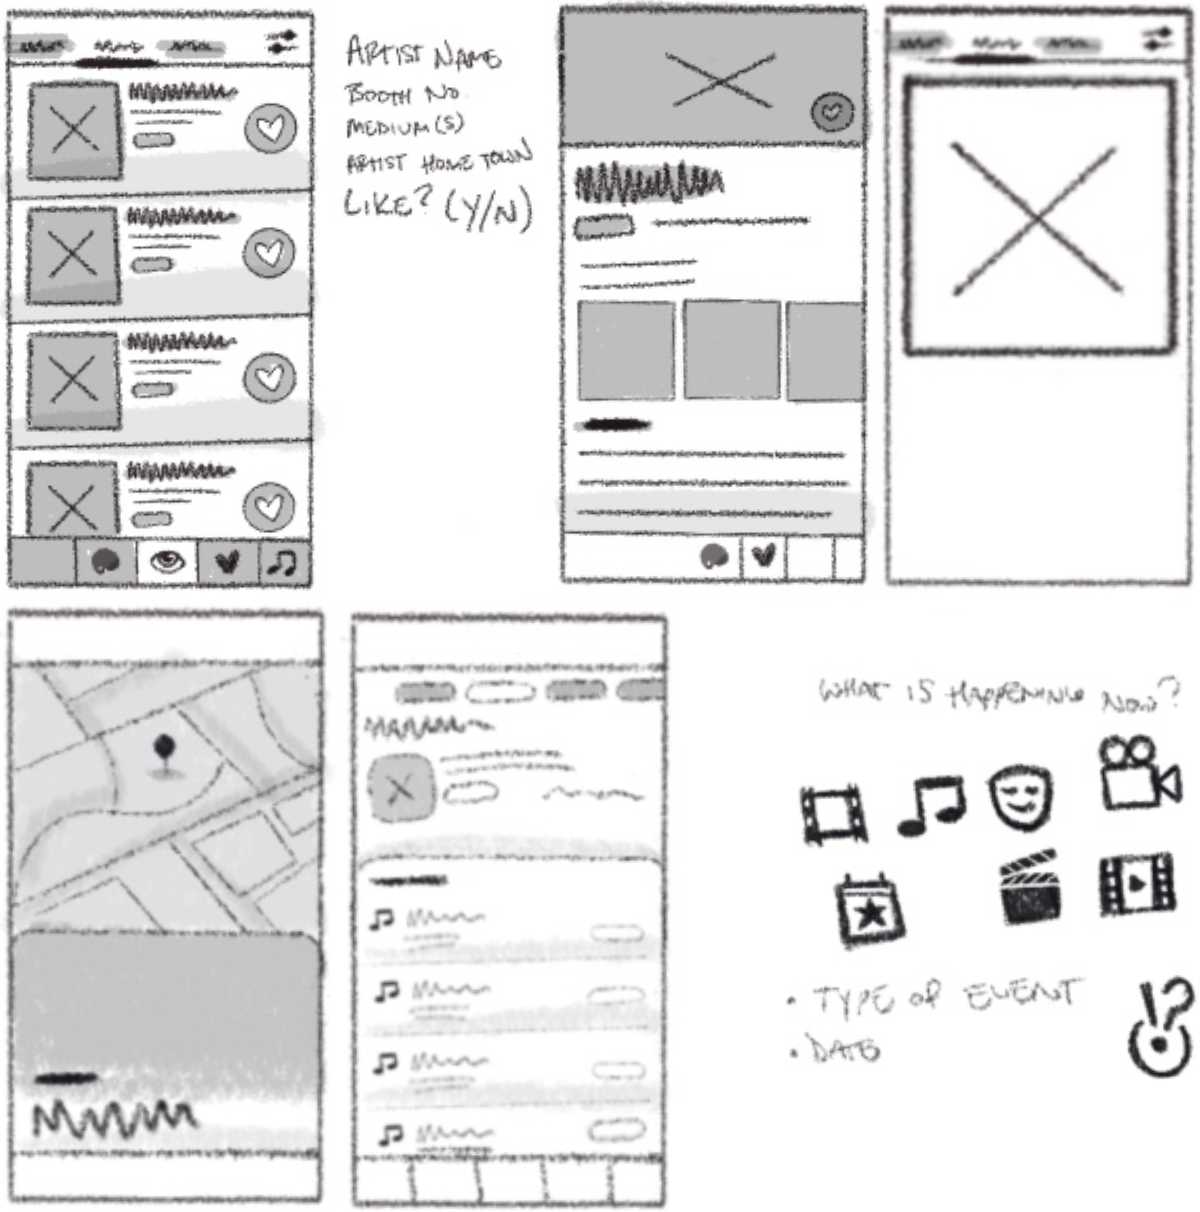 ARTIST NAME
BOOTH NO.
MEDIUM(S)
ARTIST HOME TOWN
LIKE? (Y/N)
WHAT IS HAPPENING NOW?
• TYPE OF EVENT
• DATE
!?